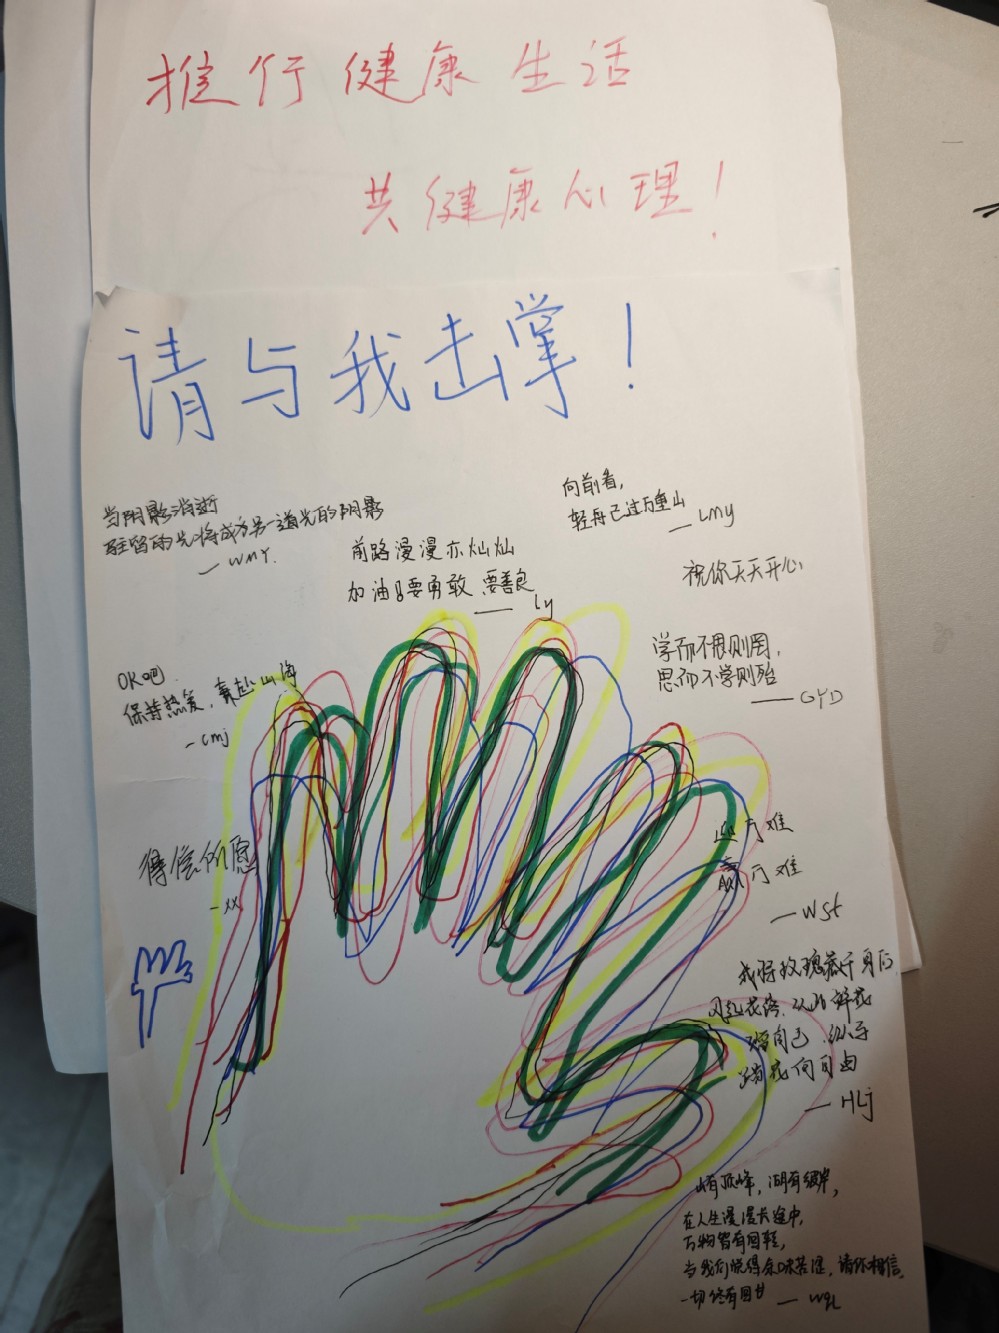 推行健康生活
共健康心理！
请与我击掌！
当阴影消逝
驻留的光将成为另一道光的阴影
— WMY.
前路漫漫亦灿灿
加油！要勇敢 要善良
— ly
向前看，
轻舟已过万重山
— LMY
祝你天天开心
学而不思则罔，
思而不学则殆
— GYD
OK吧
保持热爱，奔赴山海
- cmj
得偿所愿
- xx
迎万难
赢万难
— WSt
我将玫瑰藏于身后
风起花落，从此鲜花
赠自己，纵马
踏花向自由
— HLj
山有顶峰，湖有彼岸，
在人生漫漫长途中，
万物皆有回转，
当我们觉得余味苦涩，请你相信，
一切终有回甘 — wgl